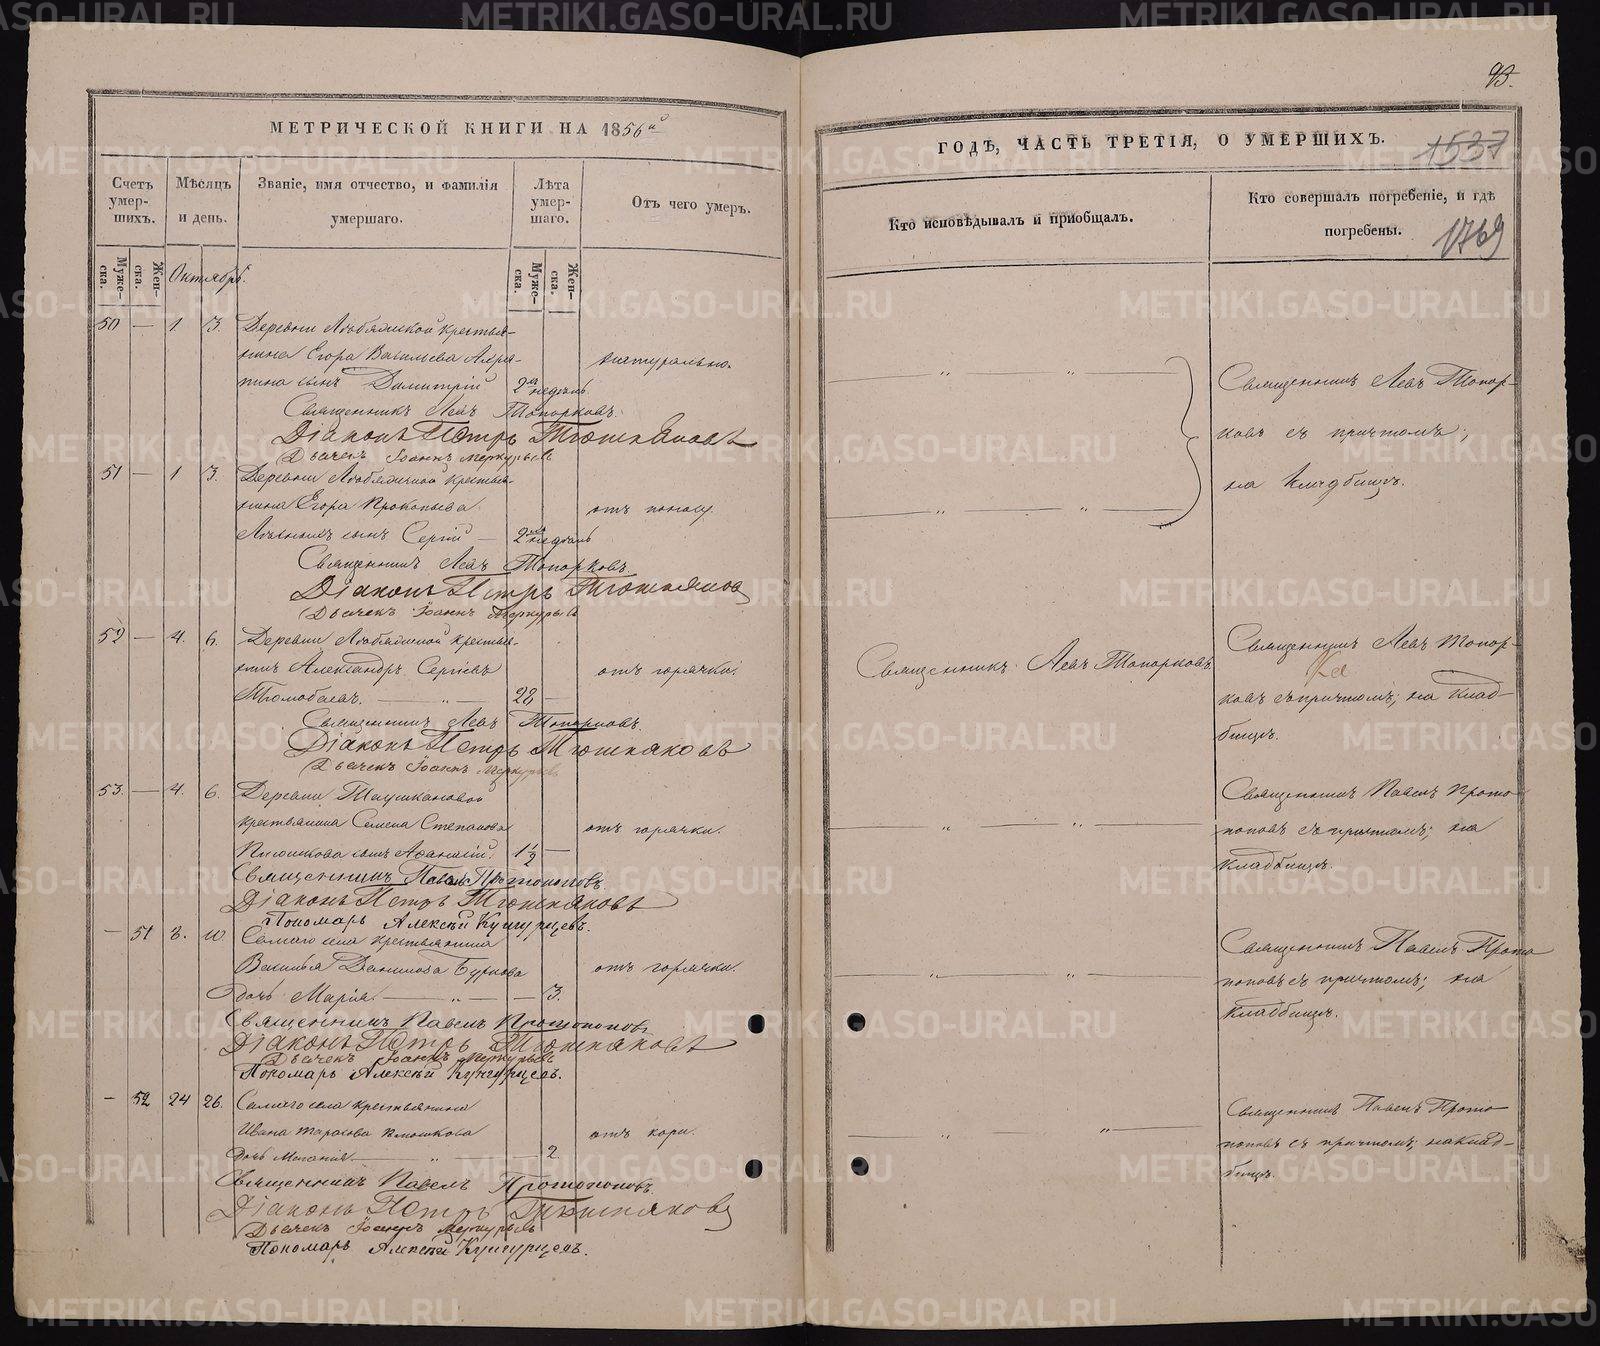 93.
МЕТРИЧЕСКОЙ КНИГИ НА 1856й
ГОДЪ, ЧАСТЬ ТРЕТІЯ, О УМЕРШИХЪ.
1537
Счетъ умер-шихъ.
Мѣсяцъ и день.
Званіе, имя отчество, и фамилія умершаго.
Лѣта умер-шаго.
Отъ чего умеръ.
Кто исповѣдывалъ и приобщалъ.
Кто совершалъ погребеніе, и гдѣ погребены.
1769
Муже-ска.
Жен-ска.
Октябрь.
Муже-ска.
Жен-ска.
50 — 1 3. Деревни крестья-
нина Егора Васильева натурально.
сынъ Димитрій 2 недѣль
Священникъ Левъ Топорковъ.
Діаконъ Петръ Тюшняковъ
Дьячекъ Іоаннъ Меркурьевъ
Священникъ Левъ Топор-
ковъ съ причтомъ;
на кладбищѣ.
51 — 1 3. Деревни крестья-
нина Егора Прокопьева отъ поносу.
сынъ Сергій — 2 недѣль
Священникъ Левъ Топорковъ.
Діаконъ Петръ Тюшняковъ
Дьячекъ Іоаннъ Меркурьевъ
52 — 4. 6. Деревни крестья-
нинъ Александръ Сергѣевъ отъ горячки.
28 —
Священникъ Левъ Топорковъ.
Діаконъ Петръ Тюшняковъ
Дьячекъ Іоаннъ Меркурьевъ
Священникъ Левъ Топорковъ.
Священникъ Левъ Топор-
ковъ съ причтомъ; на клад-
бищѣ.
53. — 4. 6. Деревни
крестьянина Семена Степанова отъ горячки.
сынъ Афанасій. 1½ —
Священникъ Павелъ Протопоповъ.
Діаконъ Петръ Тюшняковъ
Пономарь Алексѣй Кунгурцевъ.
Священникъ Павелъ Прото-
поповъ съ причтомъ; на
кладбищѣ.
— 51 8. 10. Самаго села крестьянина
Василья Данилова Буркова отъ горячки.
дочь Марія. — „ — — 3.
Священникъ Павелъ Протопоповъ
Діаконъ Петръ Тюшняковъ
Дьячекъ Іоаннъ Меркурьевъ
Пономарь Алексѣй Кунгурцевъ.
Священникъ Павелъ Прото-
поповъ съ причтомъ; на
кладбищѣ.
— 52 24 26. Самаго села крестьянина
Ивана Тарасова отъ кори.
дочь — „ — 2
Священникъ Павелъ Протопоповъ.
Діаконъ Петръ Тюшняковъ
Дьячекъ Іоаннъ Меркурьевъ
Пономарь Алексѣй Кунгурцевъ.
Священникъ Павелъ Прото-
поповъ съ причтомъ; на клад-
бищѣ.
METRIKI.GASO-URAL.RU